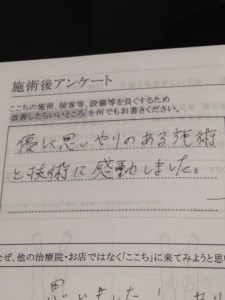 施術後アンケート
ここちの施術、接客等、設備等を良くするため
改善したらいいところを何でもお書きください。
優しく思いやりのある施術
と技術に感動しました。
なぜ、他の治療院・お店ではなく「ここち」に来てみようと思い
思いました!